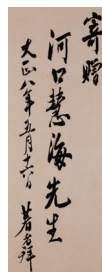 寄贈
河口慧海先生
大正八年五月十六日
著者拜